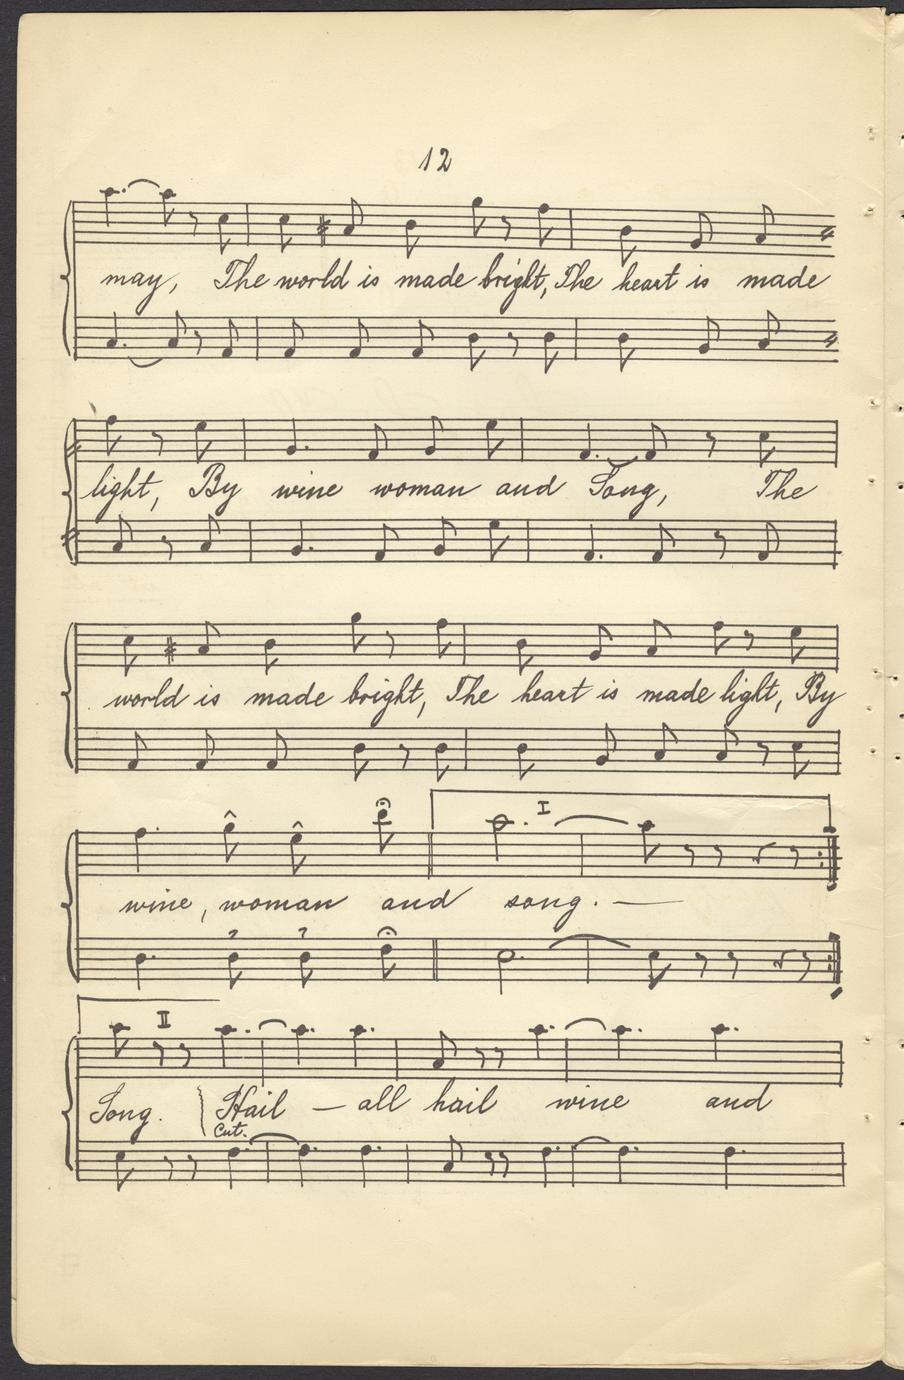 12
may, The world is made bright, The heart is made
light, By wine woman and Song, The
world is made bright, The heart is made light, By
I
wine, woman and song. —
II
Song. Hail — all hail wine and
Cut.